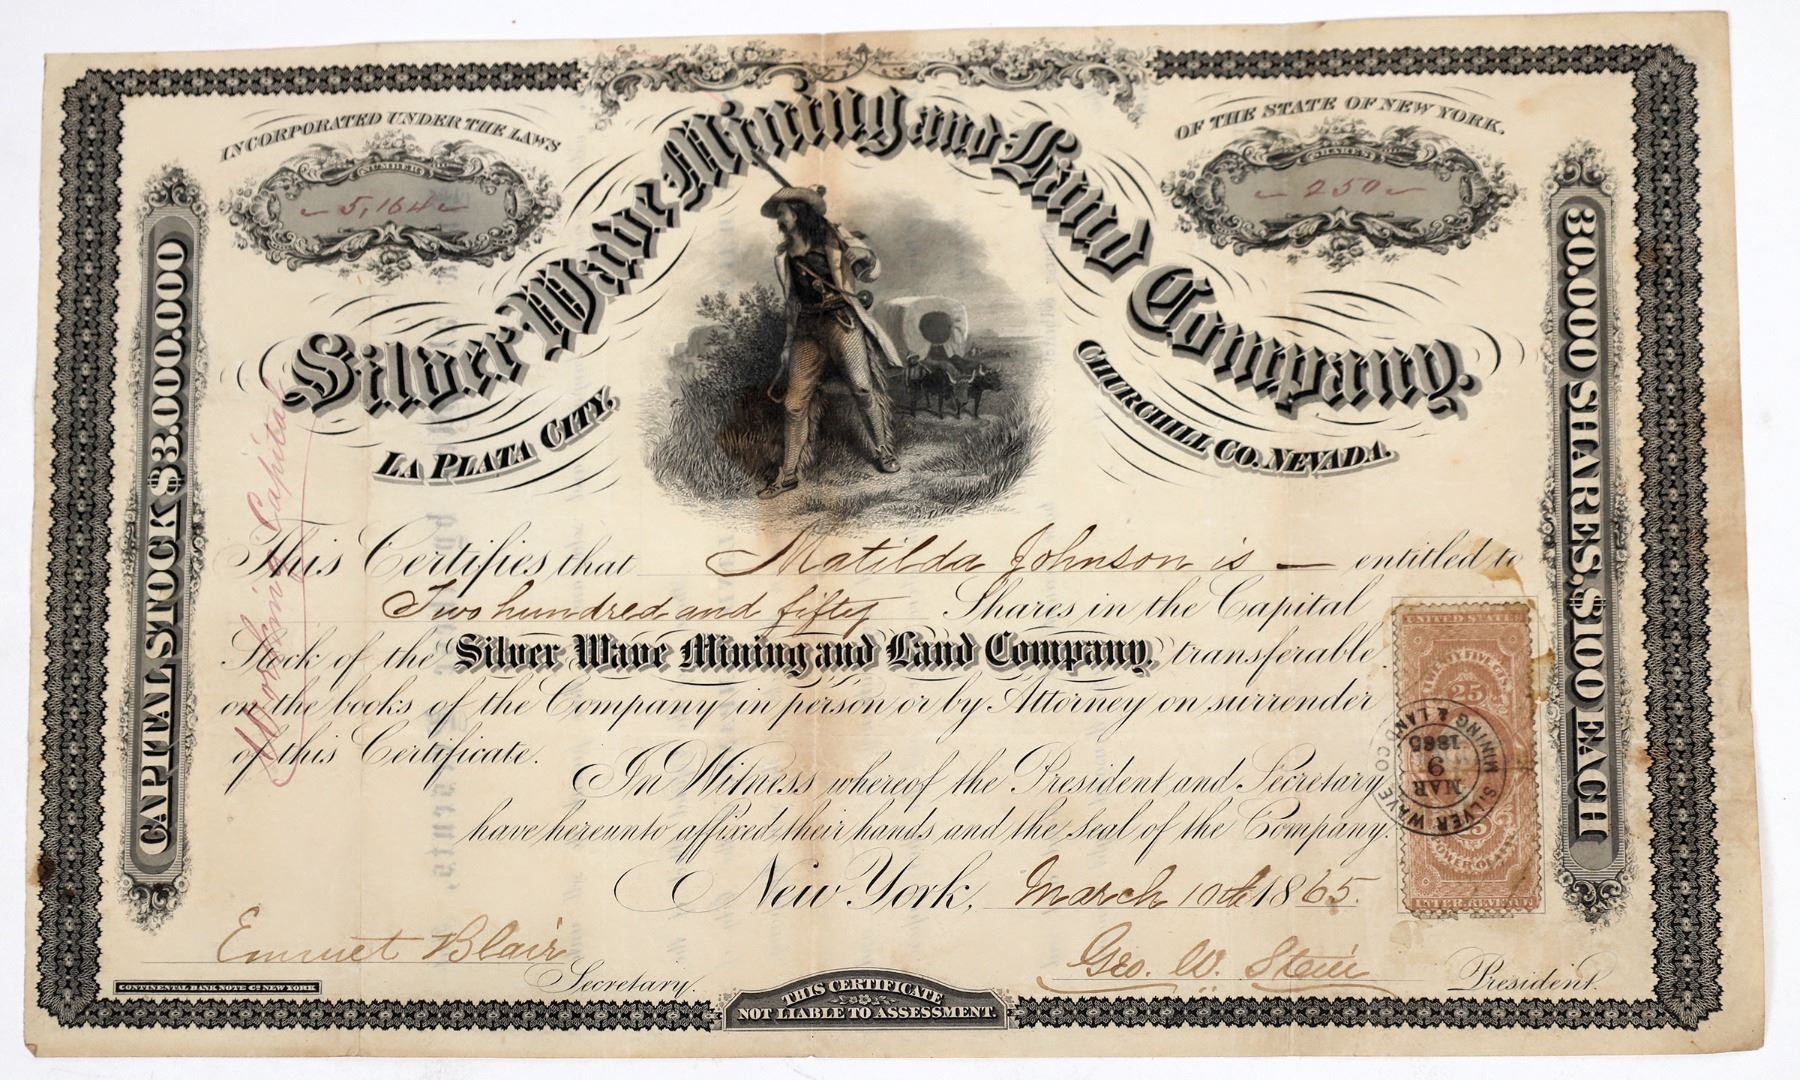 INCORPORATED UNDER THE LAWS
OF THE STATE OF NEW YORK.
NUMBER
5,164
SHARES
250
Silver Wave Mining and Land Company.
LA PLATA CITY,
CHURCHILL CO. NEVADA.
CAPITAL STOCK $3.000.000
30.000 SHARES, $100 EACH
Working Capital
This Certifies that Matilda Johnson is — entitled to
Two hundred and fifty Shares in the Capital
Stock of the Silver Wave Mining and Land Company, transferable
on the books of the Company in person or by Attorney on surrender
of this Certificate.
In Witness whereof the President and Secretary
have hereunto affixed their hands and the Seal of the Company.
New York, March 10th 1865.
UNITED STATES
TWENTY FIVE CENTS
25
SILVER WAVE MINING & LAND CO.
MAR
9
1865
25
INTER. REVENUE
Emmet Blair
Secretary.
Geo. W.
President.
CONTINENTAL BANK NOTE CO NEW YORK.
THIS CERTIFICATE
NOT LIABLE TO ASSESSMENT.